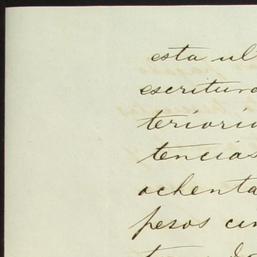 esta ul
escritura
teriorid
tencias
ochenta
pesos cin